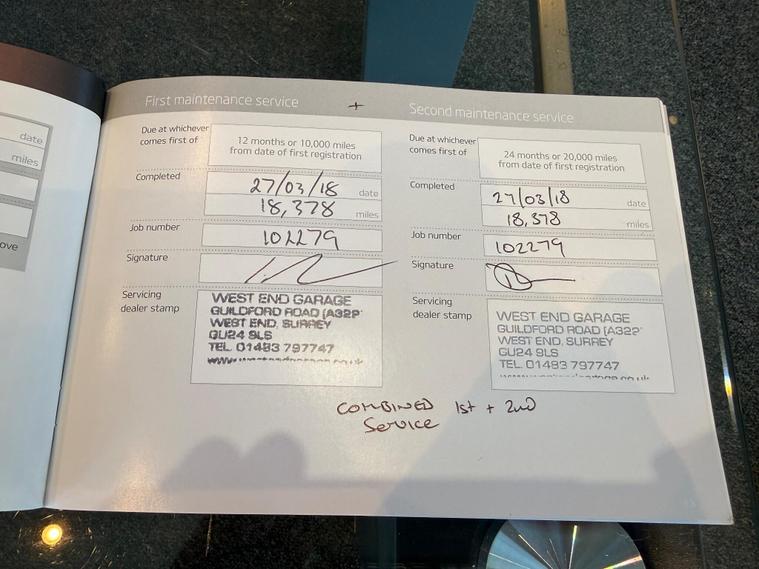 date
miles
ove
First maintenance service
+
Second maintenance service
Due at whichever
comes first of
12 months or 10,000 miles
from date of first registration
Completed
27/03/18 date
18,378 miles
Job number
102279
Signature
Servicing
dealer stamp
WEST END GARAGE
GUILDFORD ROAD (A322)
WEST END, SURREY
GU24 9LS
TEL. 01483 797747
Due at whichever
comes first of
24 months or 20,000 miles
from date of first registration
Completed
27/03/18 date
18,378 miles
Job number
102279
Signature
Servicing
dealer stamp
WEST END GARAGE
GUILDFORD ROAD (A322)
WEST END, SURREY
GU24 9LS
TEL. 01483 797747
COMBINED 1st + 2nd
Service